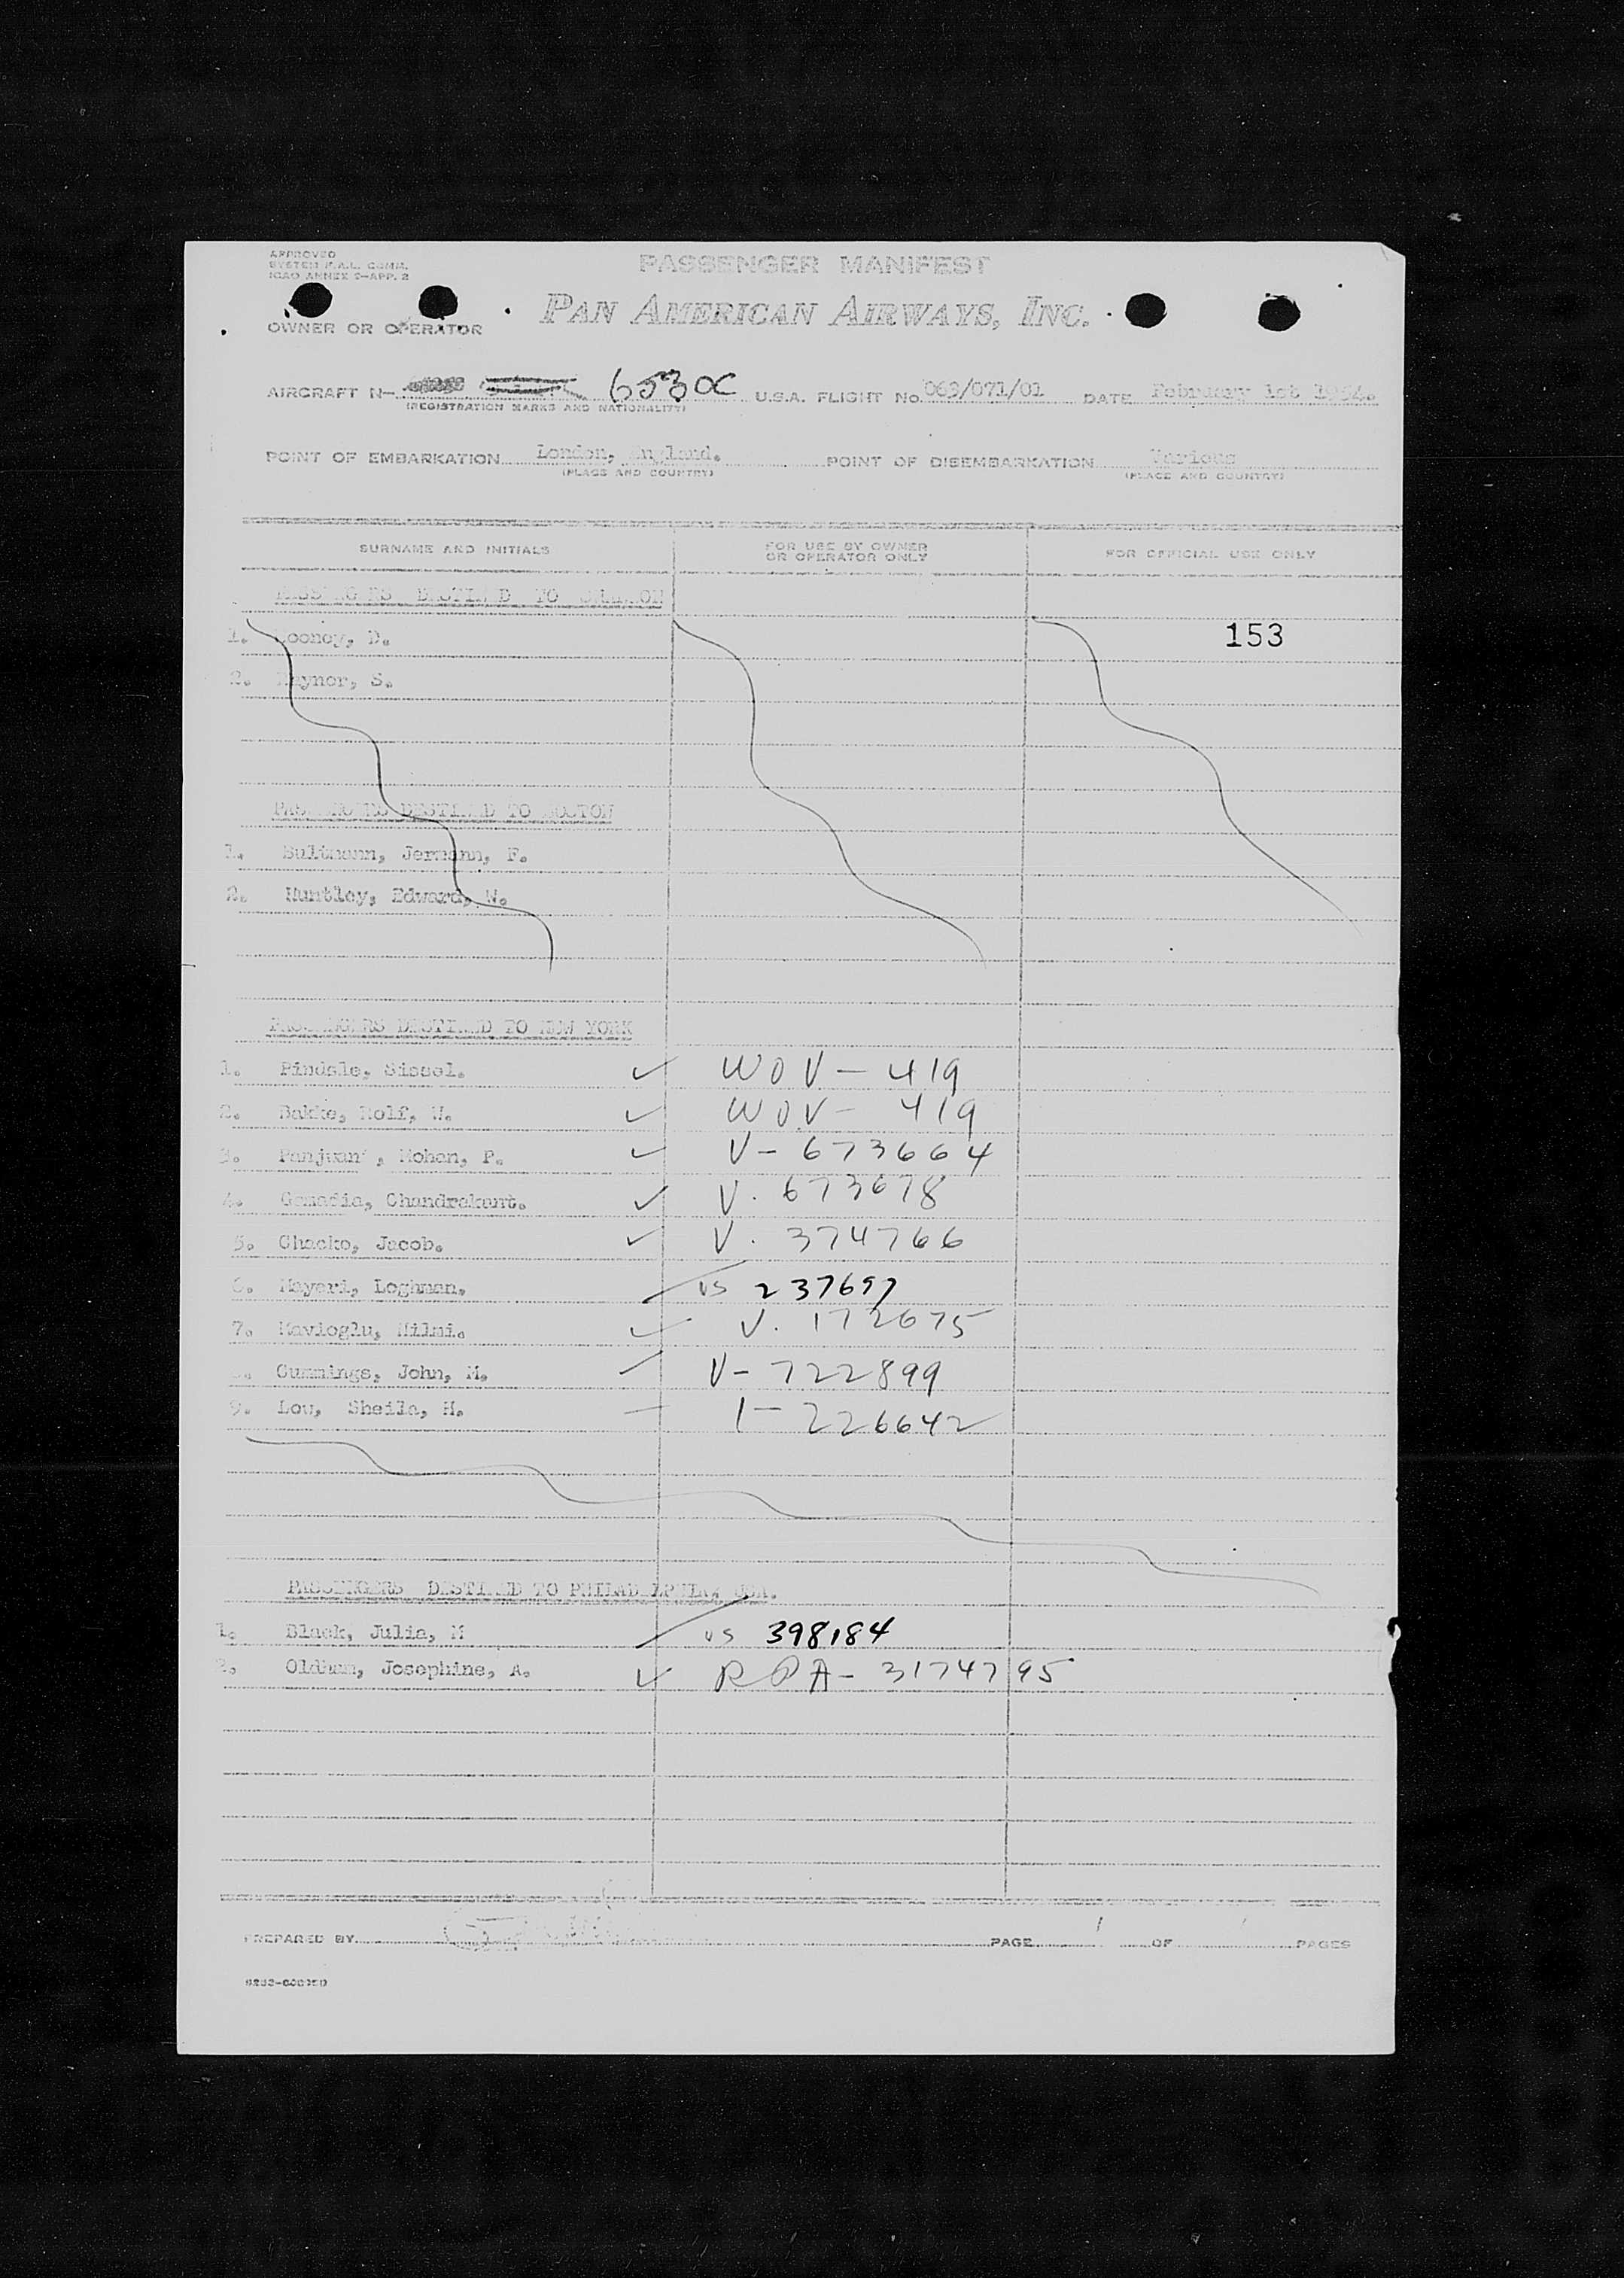 APPROVED
SYSTEM F.A.L. COMM.
ICAO ANNEX 9-APP. 2
PASSENGER MANIFEST
PAN AMERICAN AIRWAYS, INC.
OWNER OR OPERATOR
AIRCRAFT N- 6530C U.S.A. FLIGHT No. 063/071/01 DATE February 1st 1954.
(REGISTRATION MARKS AND NATIONALITY)
POINT OF EMBARKATION London, England. POINT OF DISEMBARKATION Various
(PLACE AND COUNTRY) (PLACE AND COUNTRY)
SURNAME AND INITIALS FOR USE BY OWNER OR OPERATOR ONLY FOR OFFICIAL USE ONLY
PASSENGERS DESTINED TO SHANNON
1. D. 153
2. S.
PASSENGERS DESTINED TO BOSTON
1. Bultmann, Jermann, F.
2. Huntley, Edward, W.
PASSENGERS DESTINED TO NEW YORK
1. Rindale, Sissel. ✓ WOV - 419
2. Bakke, Rolf, W. ✓ WOV - 419
3. Mohan, P. ✓ V - 673664
4. Chandrakant. ✓ V. 673678
5. Chacko, Jacob. ✓ V. 374766
6. Mayeri, Loghman. VS 237697
7. Kavioglu, Hilmi. ✓ V. 172675
Cummings, John, M. V - 722899
9. Lou, Sheila, H. 1 - 226642
PASSENGERS DESTINED TO PHILADELPHIA, USA.
1. Black, Julia, M VS 398184
2. Oldham, Josephine, A. ✓ 3174795
PREPARED BY PAGE 1 OF PAGES